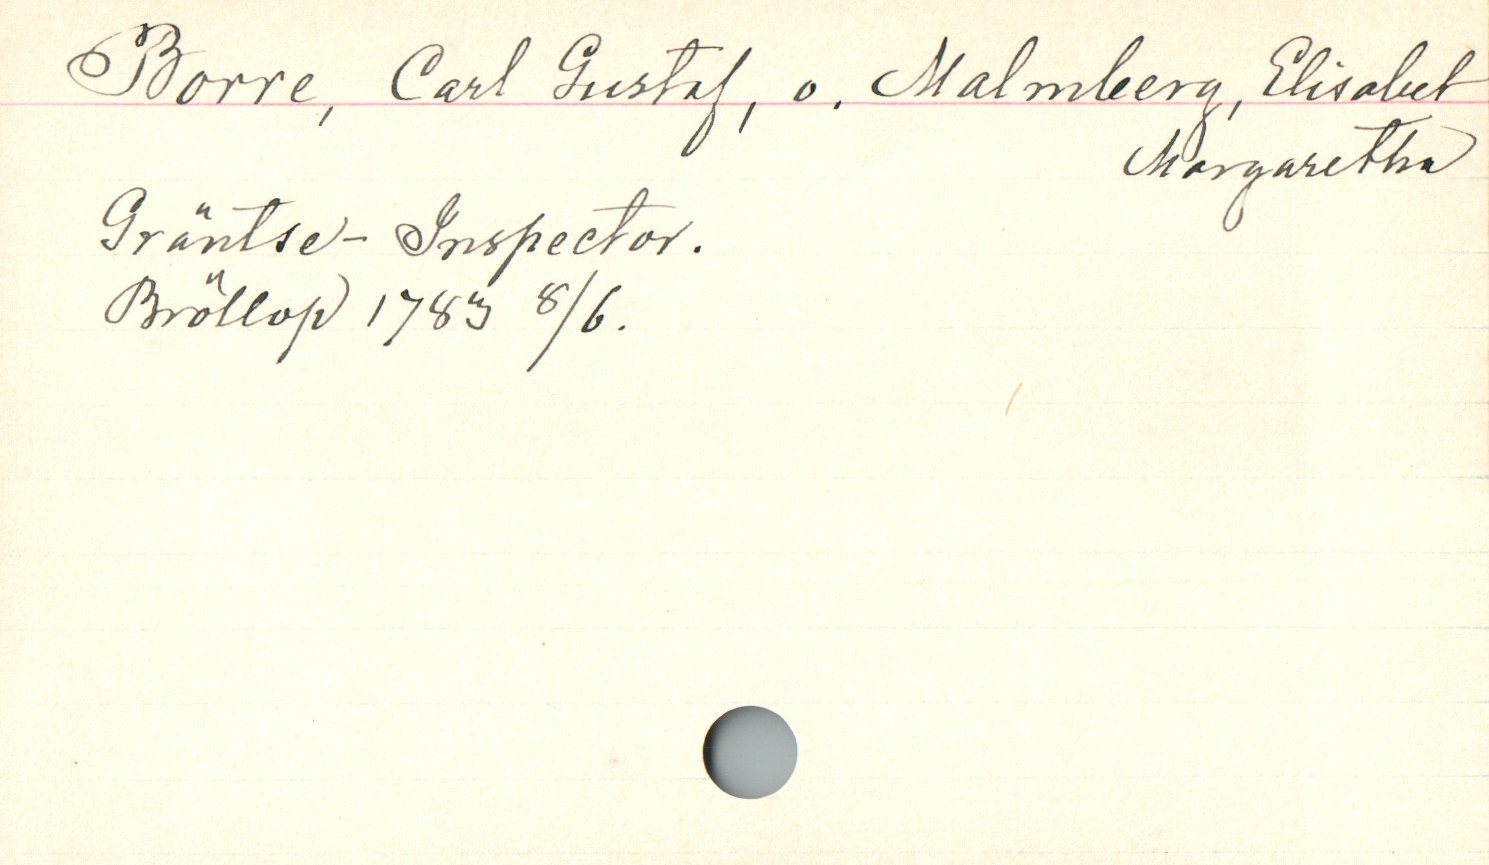 Borre, Carl Gustaf, o. Malmberg, Elisabet
Margaretha
Gräntse- Inspector.
Bröllop 1783 8/6.